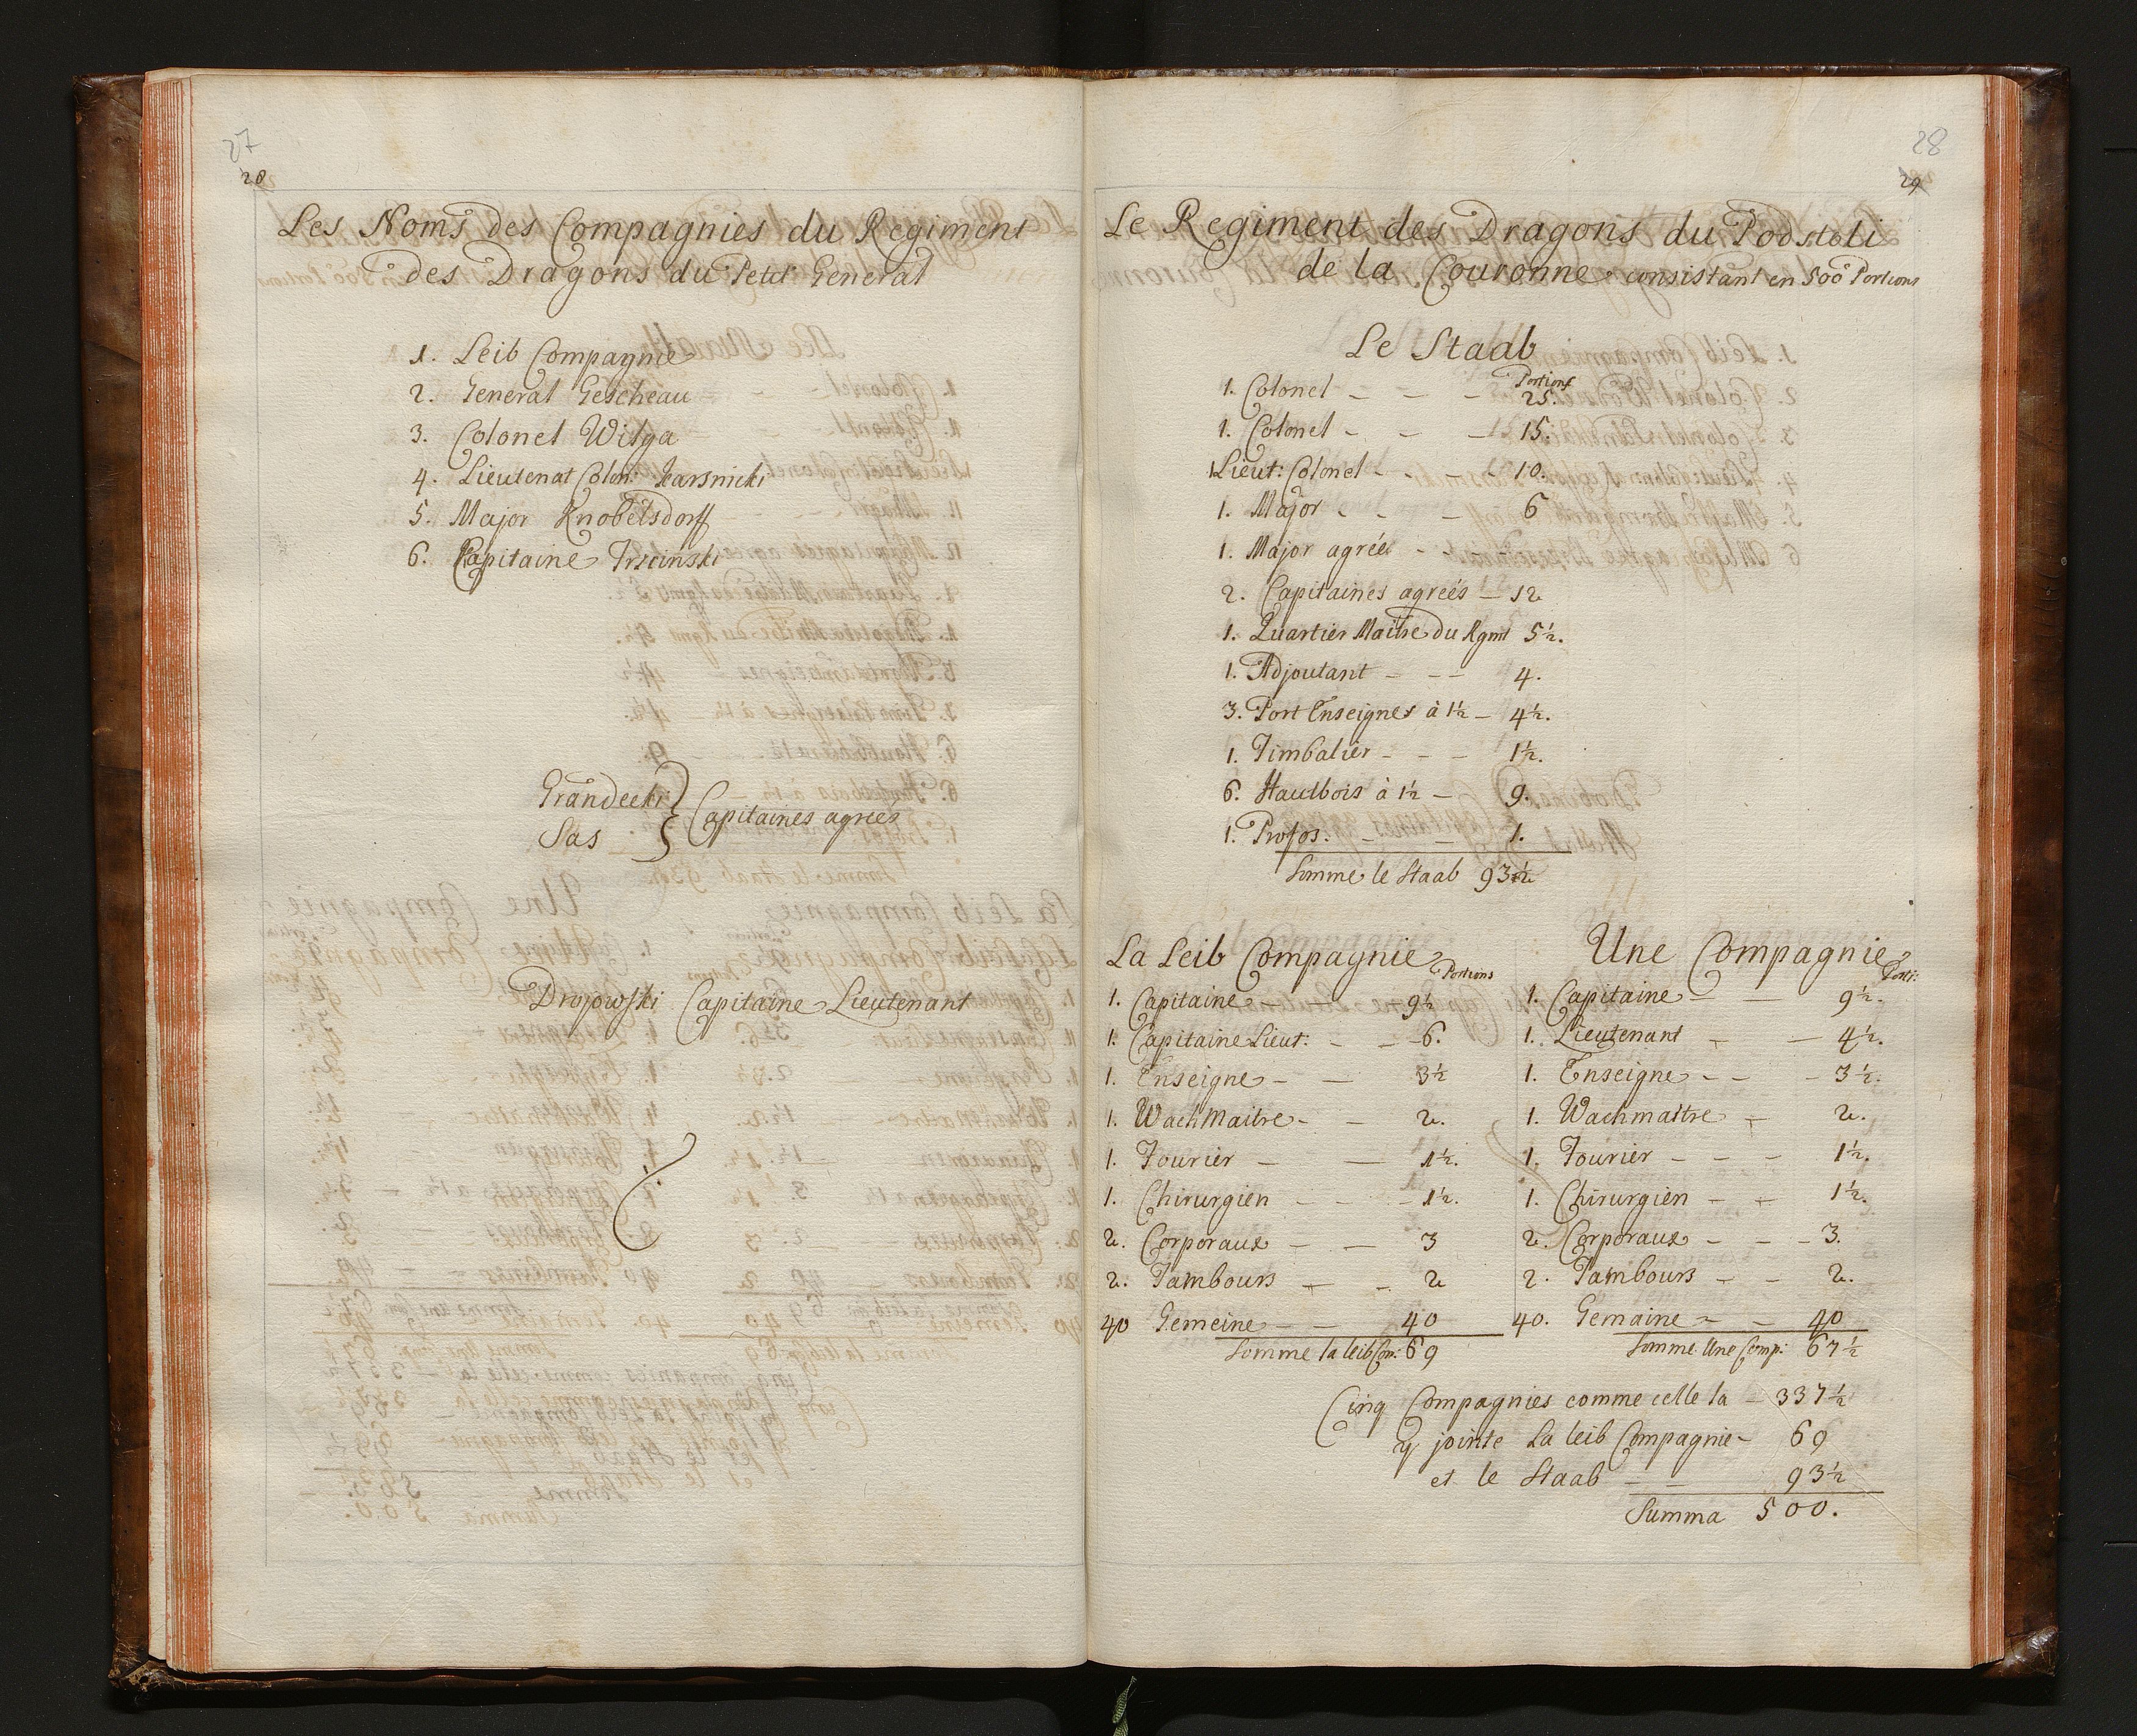 27
28
Les Noms des Compagnies du Regiment
des Dragons du Petit General
1. Leib Compagnie
2. General Gescheau
3. Colonel Wilga
4. Lieutenat Colon: Karsnicki
5. Major Knobelsdorff
6. Capitaine Trscinski
Grandecki
Sas
} Capitaines agreés
Drojowski Capitaine Lieutenant
28
29
Le Regiment des Dragons du Podstoli
de la Couronne consistant en 500 Portions
Le Staab
Portions
1. Colonel - - - 25.
1. Colonel - - - 15.
1 Lieut: Colonel - - - 10.
1. Major - - - 6
1. Major agréé - -
2. Capitaines agreés - 12
1. Quartier Maitre du Rgmt 5½.
1. Adjoutant - - - 4.
3. Port Enseignes à 1½ - 4½.
1. Timbalier - - - 1½.
6. Hautbois à 1½ - 9.
1. Profos: - - 1.
Somme le Staab 93½
La Leib Compagnie
Portions
1. Capitaine - - 9½
1. Capitaine Lieut: - - 6.
1. Enseigne - - 3½
1. WachMaitre - - 2.
1. Fourier - - 1½.
1. Chirurgien - - - 1½.
2. Corporaux - - 3
2. Tambours - - 2
40 Gemeine - - 40
Somme la leib Com: 69
Une Compagnie
Porti:
1. Capitaine - - 9½.
1. Lieutenant - - 4½.
1. Enseigne - - - 3½.
1. Wachmaitre - 2.
1. Fourier - - - 1½.
1. Chirurgien - - 1½.
2. Corporaux - - - 3.
2. Tambours - - 2.
40. Gemaine - - 40
Somme Une Comp: 67½
Cinq Compagnies comme celle la - 337½
y jointe La leib Compagnie - 69
et le Staab - - 93½
Summa 500.